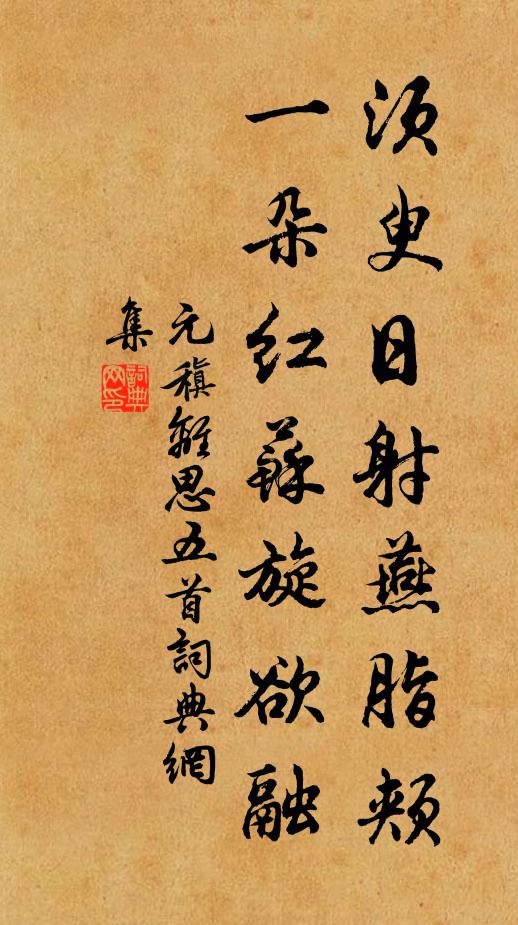 須臾日射燕脂頰
一朵紅蘇旋欲融
元稹離思五首詞典網
集
詞典
网印